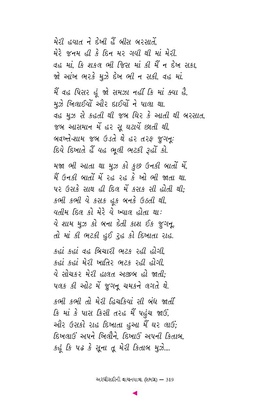 મેરી હયાત ને દેખી હૈં બીસ બરસાતેં,
મેરે જનમ હી કે દિન મર ગયી થી માં મેરી.
વહ માં, કિ શકલ ભી જિસ માં કી મૈં ન દેખ સકા,
જો આંખ ભરકે મુઝે દેખ ભી ન સકી, વહ માં.
મૈં વહ પિસર હૂં જો સમઝા નહીં કિ માં ક્યા હૈ,
મુઝે ખિલાઈયોં ઔર દાઈયોં ને પાલા થા.
વહ મુઝ સે કહતી થી જબ ઘિર કે આતી થી બરસાત,
જબ આસમાન મેં હર સૂ ઘટાયેં છાતી થી,
બવખ્તેશામ જબ ઉડતે થે હર તરફ જુગનૂ:
દિયે દિખાતે હૈં યહ ભૂલી ભટકી રૂહોં કો.
મજા ભી આતા થા મુઝ કો કુછ ઉનકી બાતોં મેં,
મૈં ઉનકી બાતોં મેં રહ રહ કે ખો ભી જાતા થા.
પર ઉસકે સાથ હી દિલ મેં કસક સી હોતી થી;
કભી કભી યે કસક હૂક બનકે ઉઠતી થી.
યતીમ દિલ કો મેરે યે ખ્યાલ હોતા થા:
યે શામ મુઝ કો બના દેતી કાશ ઈક જુગનૂ,
તો માં કી ભટકી હુઈ રૂહ કો દિખાતા રાહ.
કહાં કહાં વહ બિચારી ભટક રહી હોગી,
કહાં કહાં મેરી ખાતિર ભટક રહી હોગી,
યે સોચકર મેરી હાલત અજીબ હો જાતી;
પલક કી ઓટ મેં જુગનૂ ચમકને લગતે થે.
કભી કભી તો મેરી હિચકિયાં સી બંધ જાતીં
કિ માં કે પાસ કિસી તરહ મૈં પહુંચ જાઉં.
ઔર ઉસકો રાહ દિખાતા હુઆ મૈં ઘર લાઉં;
દિખલાઉં અપને ખિલૌને, દિખાઉં અપની કિતાબ,
કહૂં કિ પઢ કે સૂના તૂ મેરી કિતાબ મુઝે...
— 319